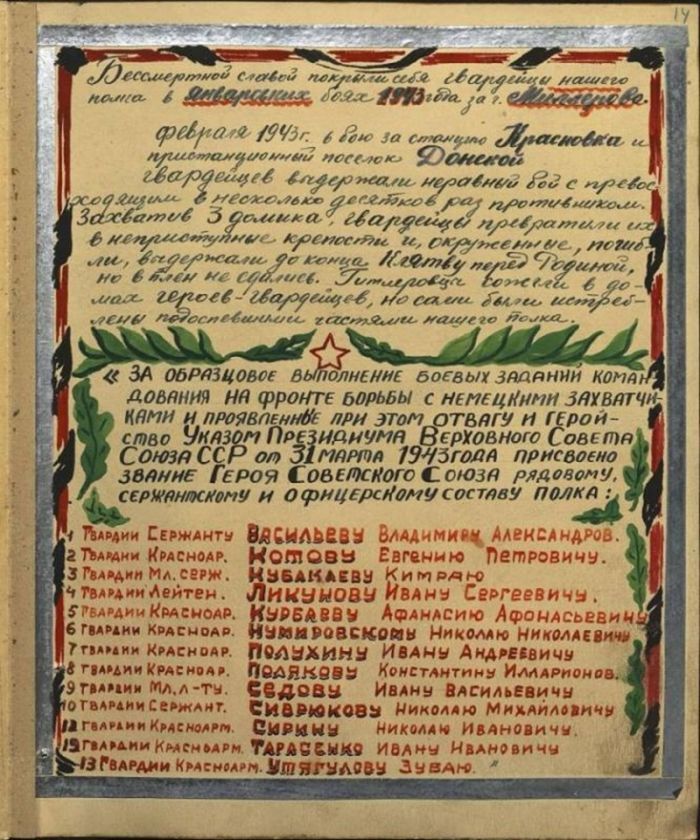 14
Бессмертной славой покрыли себя гвардейцы нашего
полка в январских боях 1943 года за г. Миллерово.
февраля 1943 г. в бою за станцию Красновка и
пристанционный поселок Донской
гвардейцев выдержали неравный бой с превос-
ходящим в несколько десятков раз противником.
Захватив 3 домика, гвардейцы превратили их
в неприступные крепости и, окруженные, погиб-
ли, выдержали до конца Клятву перед Родиной,
но в плен не сдались. Гитлеровцы сожгли в до-
мах героев-гвардейцев, но сами были истреб-
лены подоспевшими частями нашего полка.
« За образцовое выполнение боевых заданий коман-
дования на фронте борьбы с немецкими захватчи-
ками и проявленные при этом отвагу и герой-
ство Указом Президиума Верховного Совета
Союза ССР от 31 марта 1943 года присвоено
звание Героя Советского Союза рядовому,
сержантскому и офицерскому составу полка:
1 Гвардии Сержанту Васильеву Владимиру Александров.
2 Гвардии Красноар. Котову Евгению Петровичу.
3 Гвардии Мл. серж. Кубакаеву Кимраю
4 Гвардии Лейтен. Ликунову Ивану Сергеевичу.
5 Гвардии Красноар. Курбаеву Афанасию Афонасьевичу
6 Гвардии Красноар. Нумировскому Николаю Николаевичу
7 Гвардии Красноар. Полухину Ивану Андреевичу
8 Гвардии Красноар. Полякову Константину Илларионов.
9 Гвардии Мл. л-ту. Седову Ивану Васильевичу
10 Гвардии Сержант. Сиврюкову Николаю Михайловичу
Гвардии Красноарм. Сирину Николаю Ивановичу.
12 Гвардии Красноарм. Тарасенко Ивану Ивановичу
13 Гвардии Красноарм. Утягулову Зубаю. "